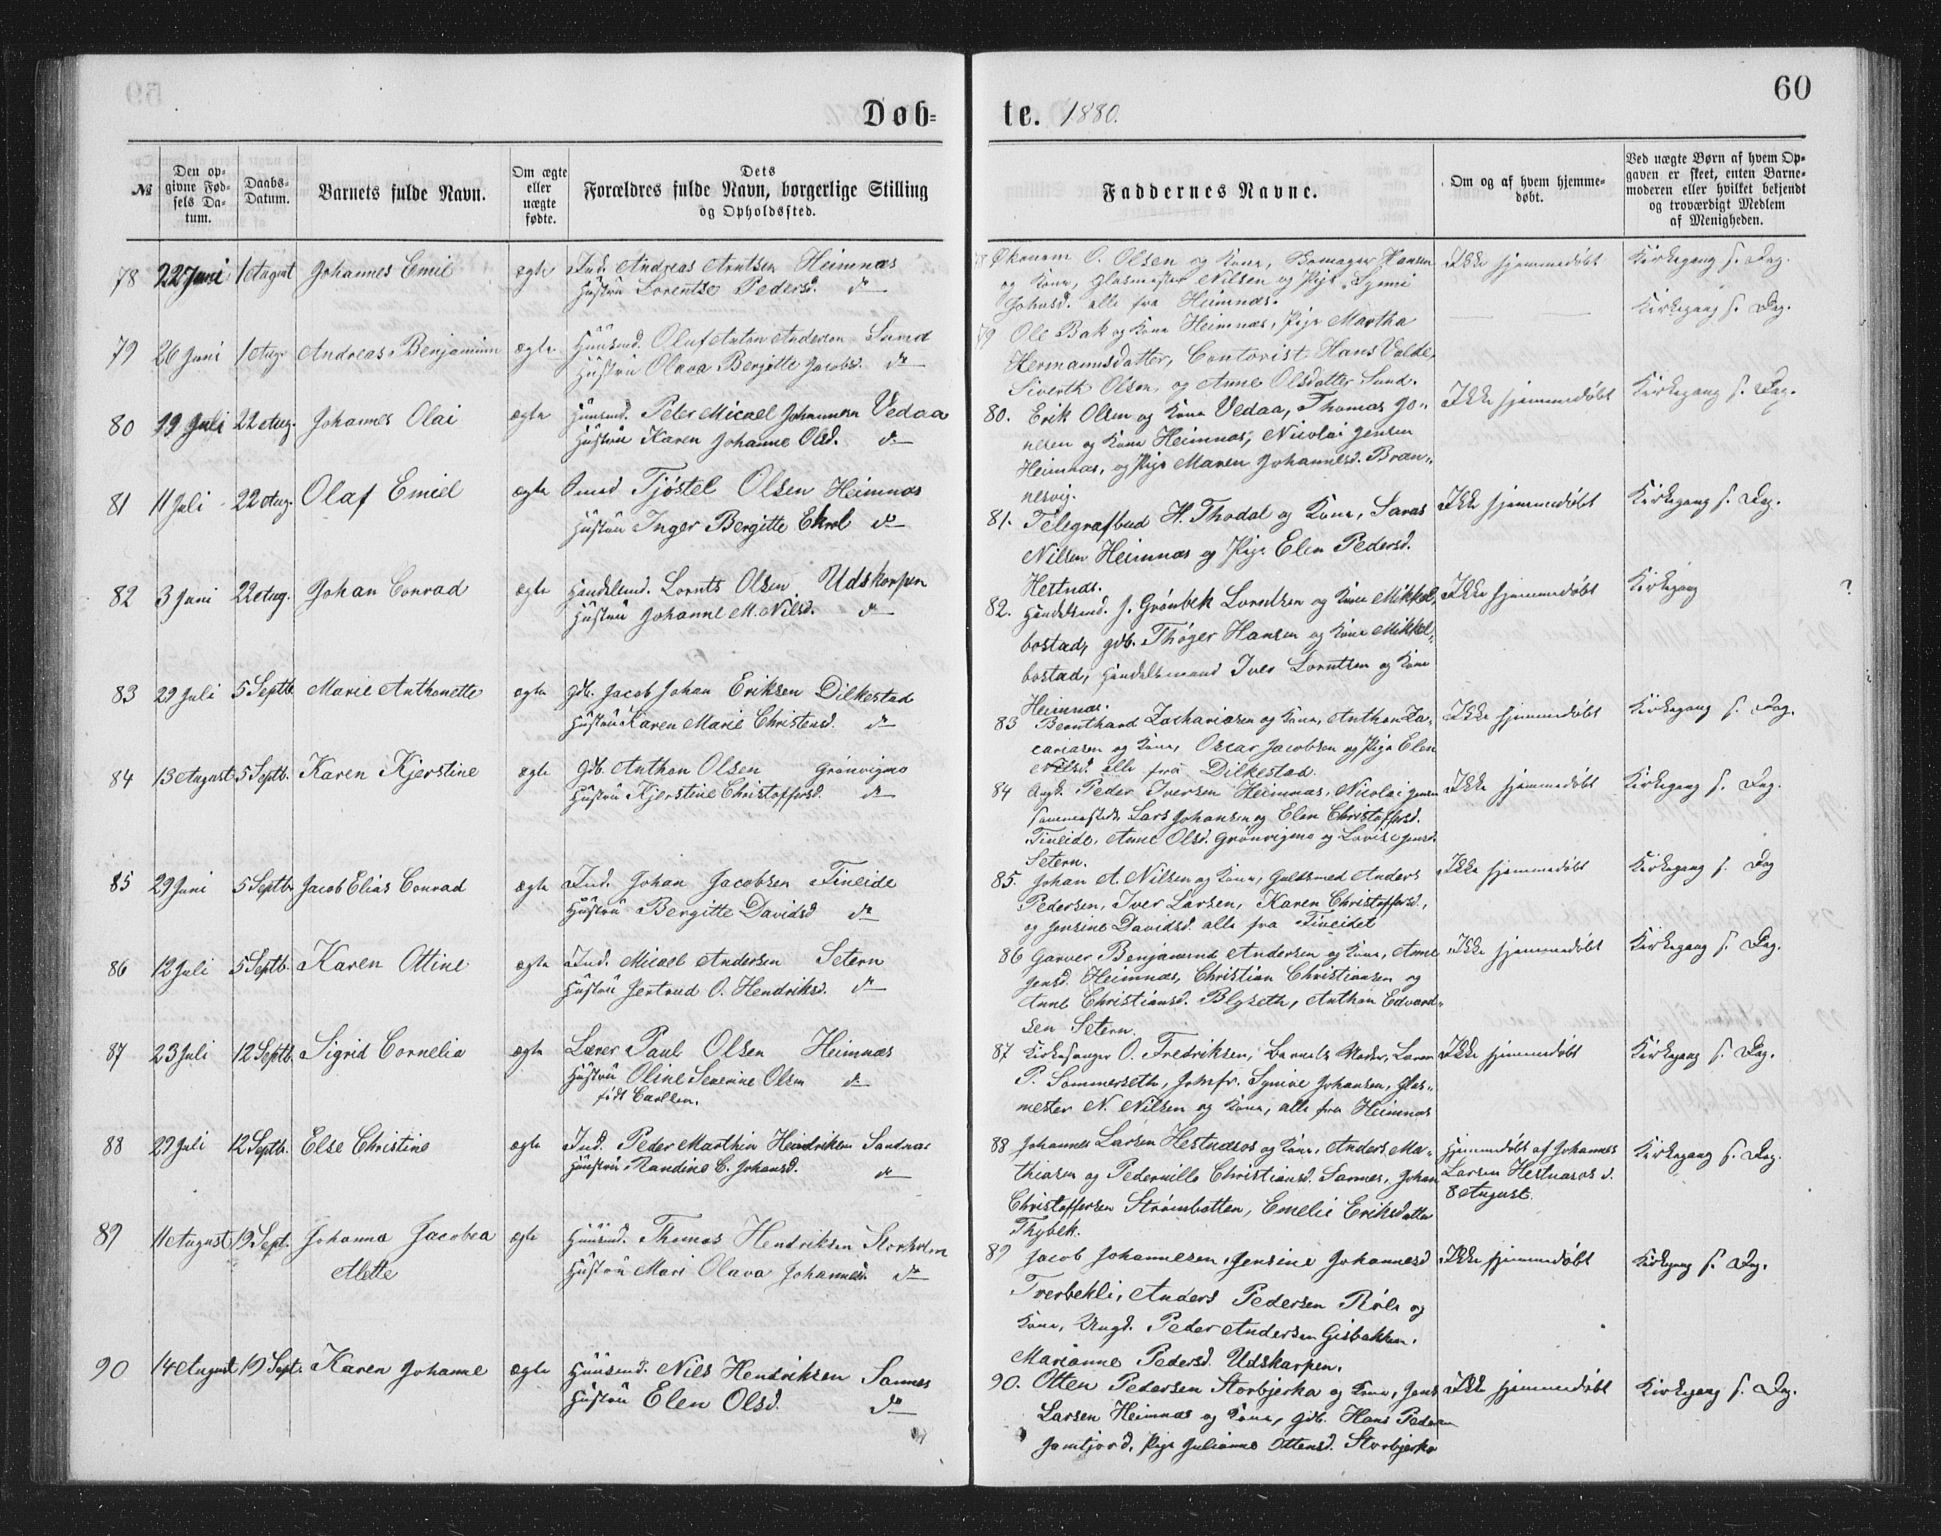 60
Døb=
te. 1880.
№
Den op-
givne Fød-
sels Da-
tum.
Daabs-
Datum.
Barnets fulde Navn.
Om ægte
eller
uægte
fødte.
Dets
Forældres fulde Navn, borgerlige Stilling
og Opholdssted.
Faddernes Navne.
Om og af hvem hjemme-
døbt.
Ved uægte Børn af hvem Op-
gaven er skeet, enten Barne-
moderen eller hvilket bekjendt
og troværdigt Medlem
af Menigheden.
78 22 Juni 1 August Johannes Emil ægte Ind. Andreas Arntsen Heimnæs
Hustru Lorentse Pedersd. do
78 Økonom O. Olsen og Kone, Hansen
og Kone, Glasmester Nilsen og Pige Synni
Johnsd. alle fra Heimnæs.
Ikke hjemmedøbt
Kirkegang s. Dag.
79 26 Juni 1 Aug. Andreas Benjamin ægte Huusmd. Oluf Anton Andersen Sund
Hustru Olava Bergitte Jacobsd. do
79 Ole Bak og Kone Heimnæs, Pige Martha
Hermannsdatter, Contorist Hans Valde,
Siverth Olsen, og Anne Olsdatter Sund.
Kirkegang s. Dag.
80 19 Juli 22 Aug. Johannes Olai ægte Huusmd. Peter Micael Johannesen Vedaa
Hustru Karen Johanne Olsd. do
80. Erik Olsen og Kone Vedaa, Thomas Jo-
nsen og Kone Heimnæs, Nicolai Jensen
Heimnæs, og Pige Maren Johannesd. Bran-
nesvig.
Ikke hjemmedøbt
Kirkegang s. Dag.
81 11 Juli 22 Aug. Olaf Emiel ægte Smed Tjøstel Olsen Heimnæs
Hustru Inger Bergitte Ehrol do
81. Telegrafbud H. Thodal og Kone, Saras
Nilsen Heimnæs og Pige Elen Pedersd.
Hestnæs.
Ikke hjemmedøbt
Kirkegang s. Dag.
82 3 Juni 22 Aug. Johan Conrad ægte Handelsmd. Lornts Olsen Udskarpen
Hustru Johanne M. Nilsd. do
82. Handelsmd. J. Grönbek Lorntsen og Kone Mikkel,
bostad, gdb. Thöger Hansen og Kone Mikkel,
bostad, Handelsmand Iver Lorntsen og Kone
Heimnæs.
Ikke hjemmedøbt
Kirkegang ?
83 29 Juli 5 Septb. Marie Anthonette ægte Gdb. Jacob Johan Eriksen Dilkestad
Hustru Karen Marie Christensd. do
83 Bernthard Zachariasen og Kone, Anthon Za-
cariasen og Kone, Oscar Jacobsen og Pige Elen
Nilsd. alle fra Dilkestad.
Ikke hjemmedøbt
Kirkegang s. Dag.
84 13 August 5 Septb. Karen Kjerstine ægte Gdb. Anthon Olsen Grönvigmo
Hustru Kjerstine Christoffersd. do
84 Ungd. Peder Iversen Heimnæs, Nicolai Jensen
sammesteds, Lars Johansen og Elen Christoffersd.
Fineide, Anne Olsd. Grönvigmo og Lovise Jensd.
Setern.
Ikke hjemmedøbt
Kirkegang s. Dag.
85 29 Juni 5 Septb. Jacob Elias Conrad ægte Ind. Johan Jacobsen Fineide
Hustru Bergitte Davidsd do
85. Johan A. Nilsen og Kone, Guldsmed Anders
Pedersen, Iver Larsen, Karen Christoffersd.,
og Jensine Davidsd. alle fra Fineidet
Ikke hjemmedøbt
Kirkegang s. Dag
86 12 Juli 5 Septb. Karen Ottine ægte Ind. Micael Andersen Setern
Hustru Jertrud O. Hendriksd. do
86 Garver Benjamind Andersen og Kone, Anne
Jensd. Heimnæs, Christian Christiansen og
Anne Christiansd. Blyseth, Anthon Edvard-
sen Setern.
Ikke hjemmedøbt
Kirkegang s. Dag.
87 23 Juli 12 Septb. Sigrid Cornelia ægte Lærer Paul Olsen Heimnæs
Hustru Oline Severine Olsen do
født Carlsen.
87 Kirkesanger O. Fredriksen, Barnets Moder, Lærer
P. Sommerseth, Jomfr. Synnöe Johansen, Glas-
mester N. Nilsen og Kone, alle fra Heimnæs
Ikke hjemmedøbt
Kirkegang s. Dag.
88 29 Juli 12 Septb. Else Christine ægte Ind. Peder Marthin Hendriksen Sandnæs
Hustru Randine C. Johansd. do
88 Johannes Larsen Hestnæsos og Kone, Anders Ma-
thiasen og Pedernille Christiansd. Sannes, Johan
Christoffersen Strömbotten, Emelie Eriksdatter
Thybek.
Hjemmedøbt af Johannes
Larsen Hestnæsos d.
8 August.
Kirkegang s. Dag.
89 11 August 19 Sept. Johanna Jacobea ægte Huusmd. Thomas Hendriksen Storholm
Mette
Hustru Mari Olava Johannesd. do
89 Jacob Johannesen, Jensine Johannesd
Tverbekli, Anders Pedersen Röls og
Kone, Ungd. Peder Andersen Gisbakken.
Marianne Pedersd. Udskarpen.
Ikke hjemmedøbt
Kirkegang s. Dag.
90 14 August 19 Sept. Karen Johanne ægte Huusmd. Nils Hendriksen Sannes
Hustru Elen Olsd. do
90. Otten Pedersen Storbjerka og Kone, Jens
Larsen Heimnæs og Kone, gdb. Hans Pedersen
Jamtjord, Pige Julianne Ottensd. Storbjerka
Ikke hjemmedøbt
Kirkegang s. Dag.